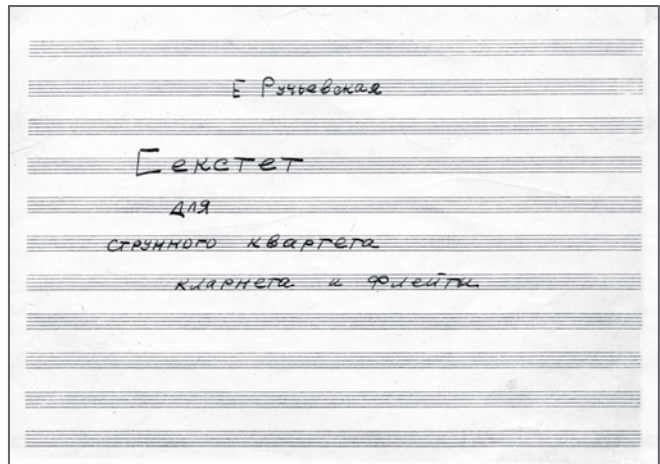 Е Ручьевская
Секстет
для
струнного квартета
кларнета и флейты